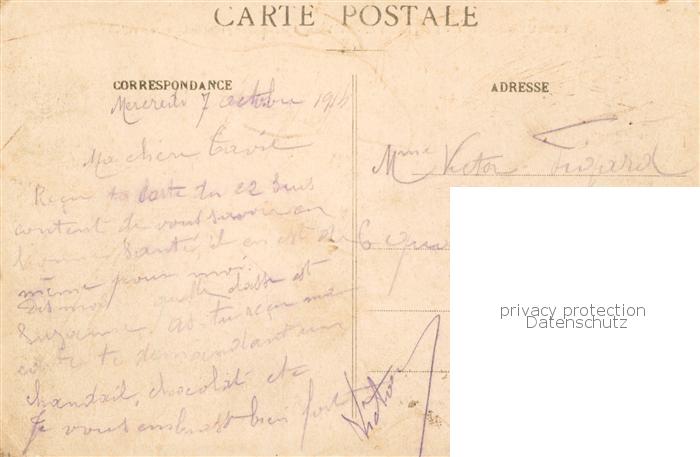 CARTE POSTALE
CORRESPONDANCE
ADRESSE
Mercredi 7 octobre 1914
Ma chère
Mme Victor Figard
Reçu ta carte du 22 suis
content de vous savoir en
bonne santé, il en est de
6 Quai
même pour moi.
Dis moi quelle classe est
Suzanne. As-tu reçu ma
carte te demandant un
chandail, chocolat etc
Je vous embrasse bien fort
Victor
privacy protection
Datenschutz